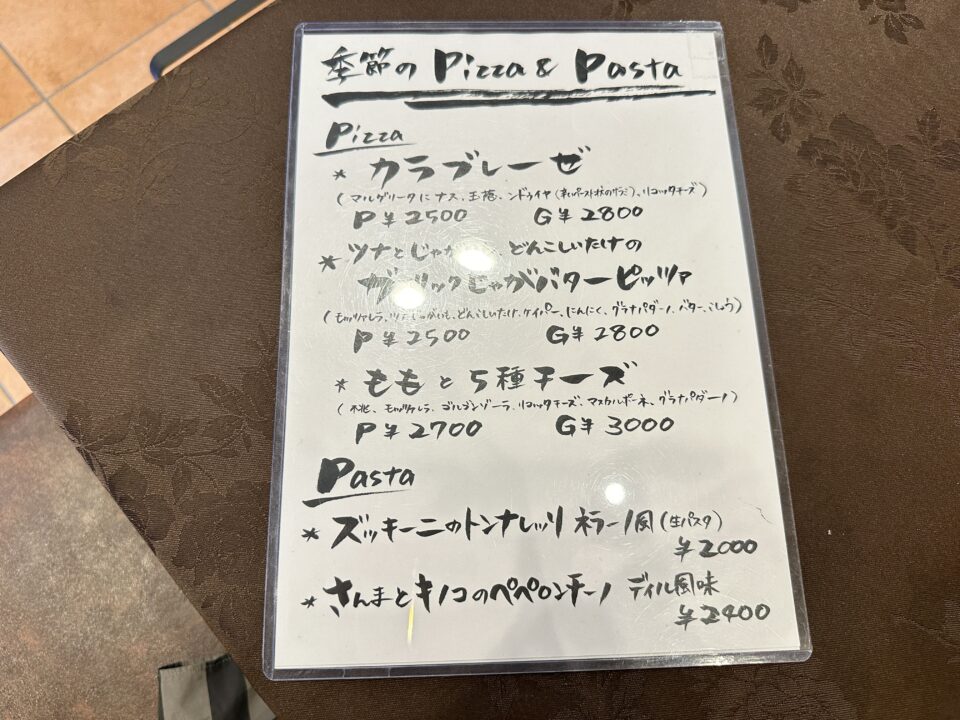 季節の Pizza & Pasta
Pizza
* カラブレーゼ
(マルゲリータに ナス、玉葱、ンドゥイヤ(辛いペースト状のサラミ)、リコッタチーズ)
P ¥2500 G¥2800
* ツナとじゃが どんこしいたけの
ガーリックじゃがバターピッツァ
(モッツァレラ、ツナ、じゃがいも、どんこしいたけ、ケイパー、にんにく、グラナパダーノ、バター、こしょう)
P ¥2500 G¥2800
* ももと 5種チーズ
(桃、モッツァレラ、ゴルゴンゾーラ、リコッタチーズ、マスカルポーネ、グラナパダーノ)
P ¥2700 G¥3000
Pasta
* ズッキーニのトンナレッリ ネラーノ風(生パスタ)
¥2000
* さんまとキノコのペペロンチーノ ディル風味
¥2400